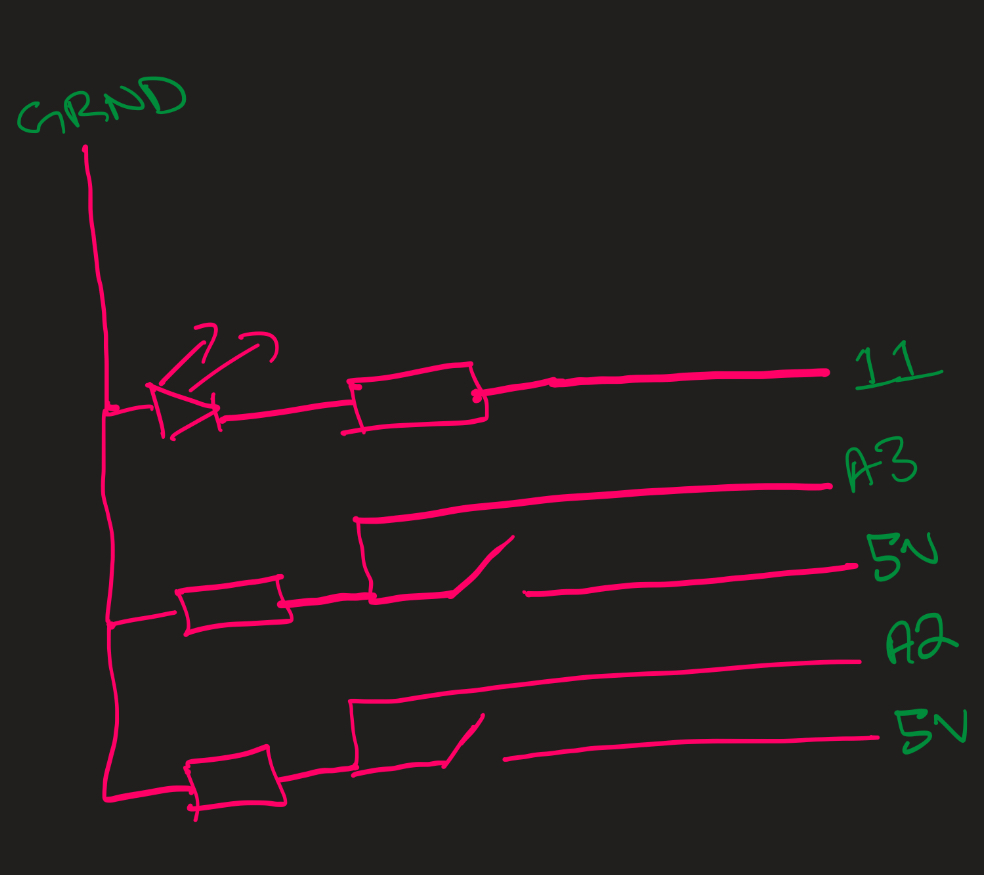 GRND
11
A3
5V
A2
5V